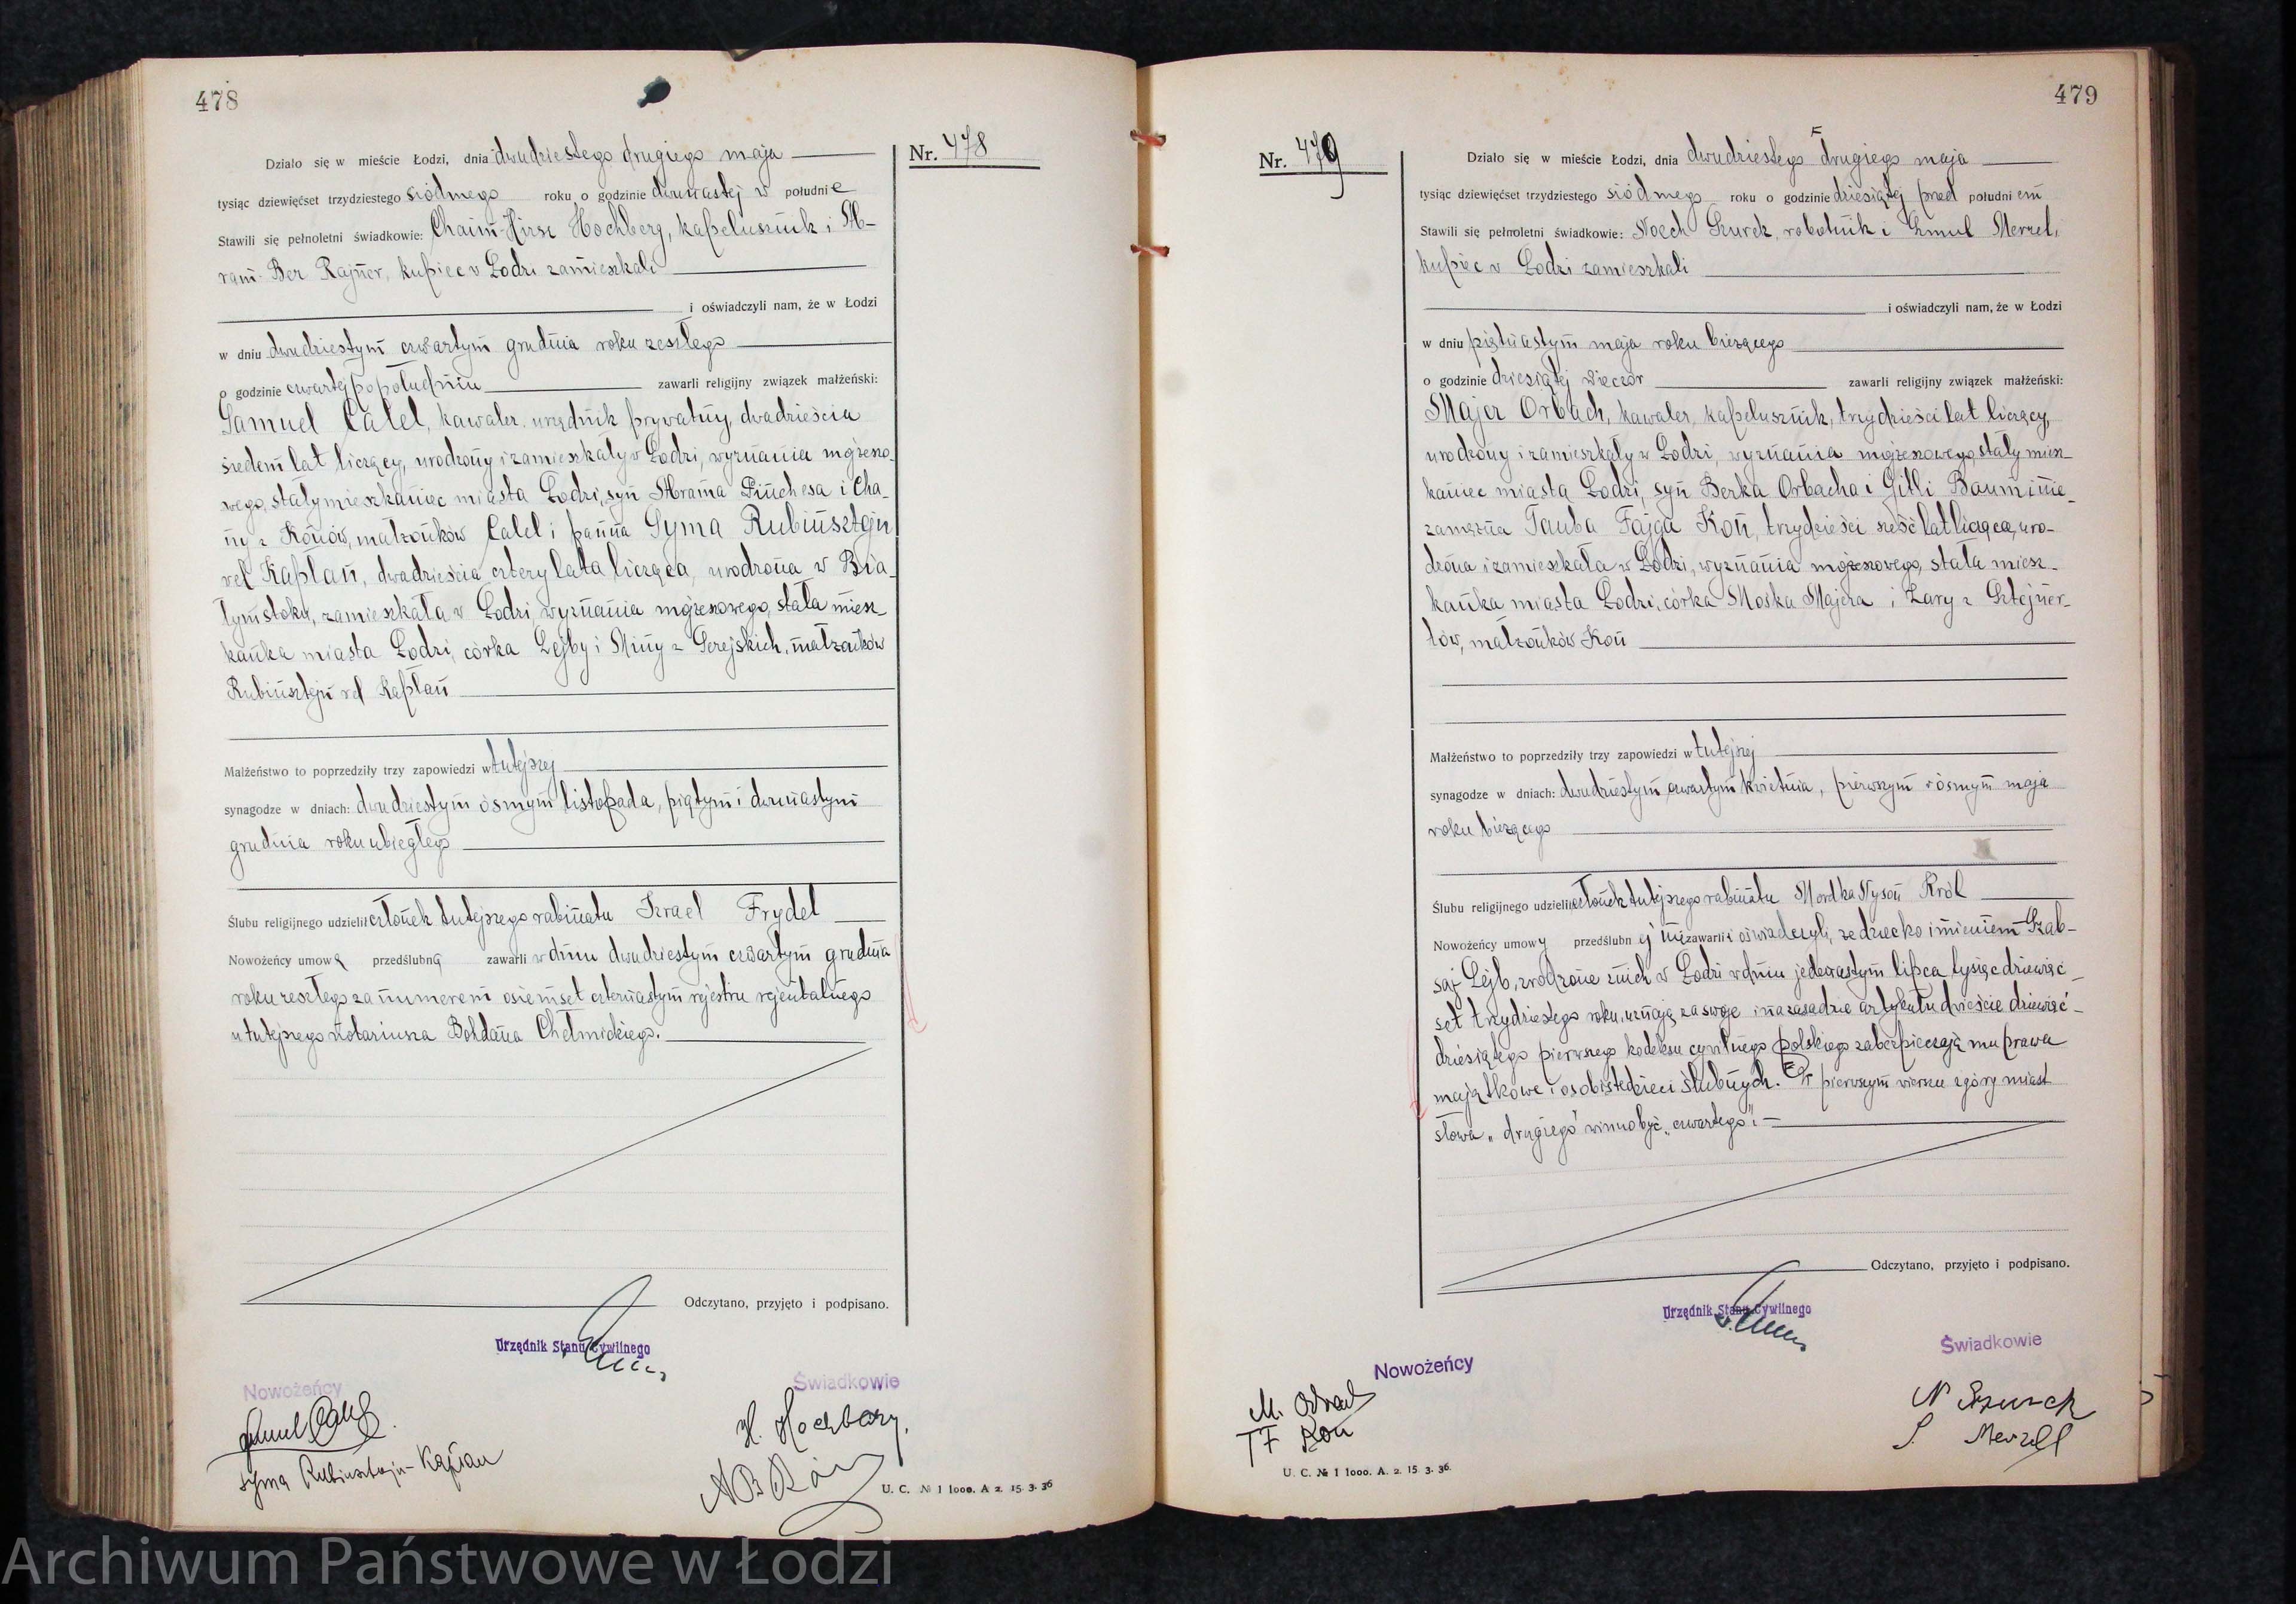 478
Działo się w mieście Łodzi, dnia dwudziestego drugiego maja
Nr. 478
tysiąc dziewięćset trzydziestego siódmego roku o godzinie dwunastej w południe
Stawili się pełnoletni świadkowie: Chaim-Hirsz Hochberg, kapelusznik i Ab-
ram-Ber Rajner, kupiec w Łodzi zamieszkali
i oświadczyli nam, że w Łodzi
w dniu dwudziestym czwartym grudnia roku zeszłego
o godzinie czwartej popołudniu zawarli religijny związek małżeński:
Samuel Calel, kawaler, urzędnik prywatny, dwadzieścia
siedem lat liczący, urodzony i zamieszkały w Łodzi, wyznania mojżeszo-
wego, stały mieszkaniec miasta Łodzi, syn Abrama Pinchesa i Cha-
ny z Konów, małżonków Calel i panna Syma Rubinsztejn
vel Kapłan, dwadzieścia cztery lata licząca, urodzona w Bia-
łymstoku, zamieszkała w Łodzi, wyznania mojżeszowego, stała miesz-
kanka miasta Łodzi, córka Lejby i Miny z Serejskich, małżonków
Rubinsztejn vel Kapłan
Małżeństwo to poprzedziły trzy zapowiedzi w tutejszej
synagodze w dniach: dwudziestym ósmym listopada, piątym i dwunastym
grudnia roku ubiegłego
Ślubu religijnego udzielił członek tutejszego rabinatu Izrael Frydel
Nowożeńcy umowę przedślubną zawarli w dniu dwudziestym czwartym grudnia
roku zeszłego za numerem osiemset czternastym rejestru rejentalnego
u tutejszego notariusza Bohdana Chełmickiego.
Odczytano, przyjęto i podpisano.
Urzędnik Stanu Cywilnego
Nowożeńcy
Świadkowie
H. Hochberg.
Syma Rubinsztejn-Kapłan
U. C. № 1 1000. A 2. 15. 3. 36
479
Nr. 479
Działo się w mieście Łodzi, dnia dwudziestego drugiego maja
tysiąc dziewięćset trzydziestego siódmego roku o godzinie dziesiątej przed południem
Stawili się pełnoletni świadkowie: Noech Szurek, robotnik i Szmul Merzel,
kupiec w Łodzi zamieszkali
i oświadczyli nam, że w Łodzi
w dniu piętnastym maja roku bieżącego
o godzinie dziesiątej wieczór zawarli religijny związek małżeński:
Majer Orbach, kawaler, kapelusznik, trzydzieści lat liczący,
urodzony i zamieszkały w Łodzi, wyznania mojżeszowego, stały miesz-
kaniec miasta Łodzi, syn Berka Orbacha i Gitli Baum i nie-
zamężna Tauba Fajga Kon, trzydzieści sześć lat licząca, uro-
dzona i zamieszkała w Łodzi, wyznania mojżeszowego, stała miesz-
kanka miasta Łodzi, córka Mośka Majera i Zary z Sztejner-
tów, małżonków Kon
Małżeństwo to poprzedziły trzy zapowiedzi w tutejszej
synagodze w dniach: dwudziestym czwartym kwietnia, pierwszym i ósmym maja
roku bieżącego
Ślubu religijnego udzielił członek tutejszego rabinatu Mordka Nyson Król
Nowożeńcy umowy przedślubnej nie zawarli i oświadczyli, że dziecko imieniem Szab-
saj Lejb, zrodzone z nich w Łodzi w dniu jedenastym lipca tysiąc dziewięć-
set trzydziestego roku, uznają za swoje i na zasadzie artykułu dwieście dziewięć-
dziesiątego pierwszego kodeksu cywilnego polskiego zabezpieczają mu prawa
majątkowe i osobiste dzieci ślubnych. W pierwszym wierszu z góry miast
słowa „drugiego" winno być „czwartego".
Odczytano, przyjęto i podpisano.
Urzędnik Stanu Cywilnego
Nowożeńcy
Świadkowie
M. Orbach
TF Kon
N Szurek
S. Merzel
U. C. № 1 1000. A. 2. 15. 3. 36.
Archiwum Państwowe w Łodzi